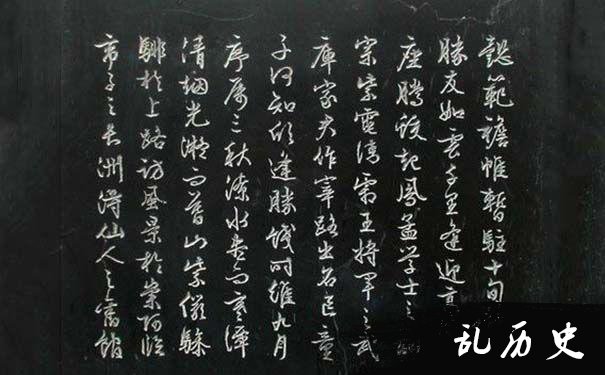 懿範襜帷暫駐十旬
勝友如雲千里逢迎高
座騰蛟起鳳孟學士之
宗紫電清霜王將軍之武
庫家君作宰路出名區童
子何知躬逢勝餞時維九月
序屬三秋潦水盡而寒潭
清煙光凝而暮山紫儼驂
騑於上路訪風景於崇阿臨
帝子之長洲得仙人之舊館
乱历史